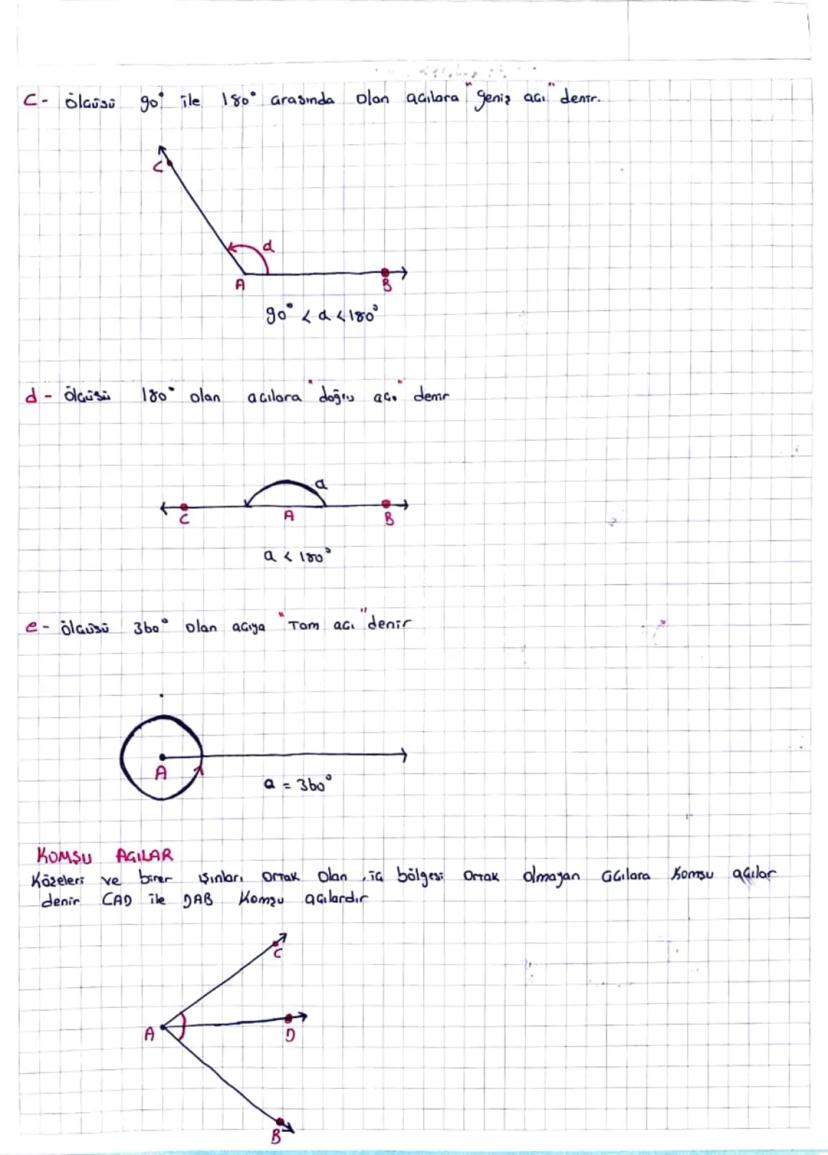 c- ölçüsü 90° ile 180° arasında olan açılara "geniş açı" denir.
C
α
A
B
90° < α < 180°
d- ölçüsü 180° olan açılara "doğru açı" denir
α
C
A
B
α < 180°
e- ölçüsü 360° olan açıya "Tam açı" denir
A
α = 360°
KOMŞU AÇILAR
Köşeleri ve birer ışınları ortak olan, iç bölgesi ortak olmayan açılara Komşu açılar
denir CAD ile DAB Komşu açılardır
C
A
D
B